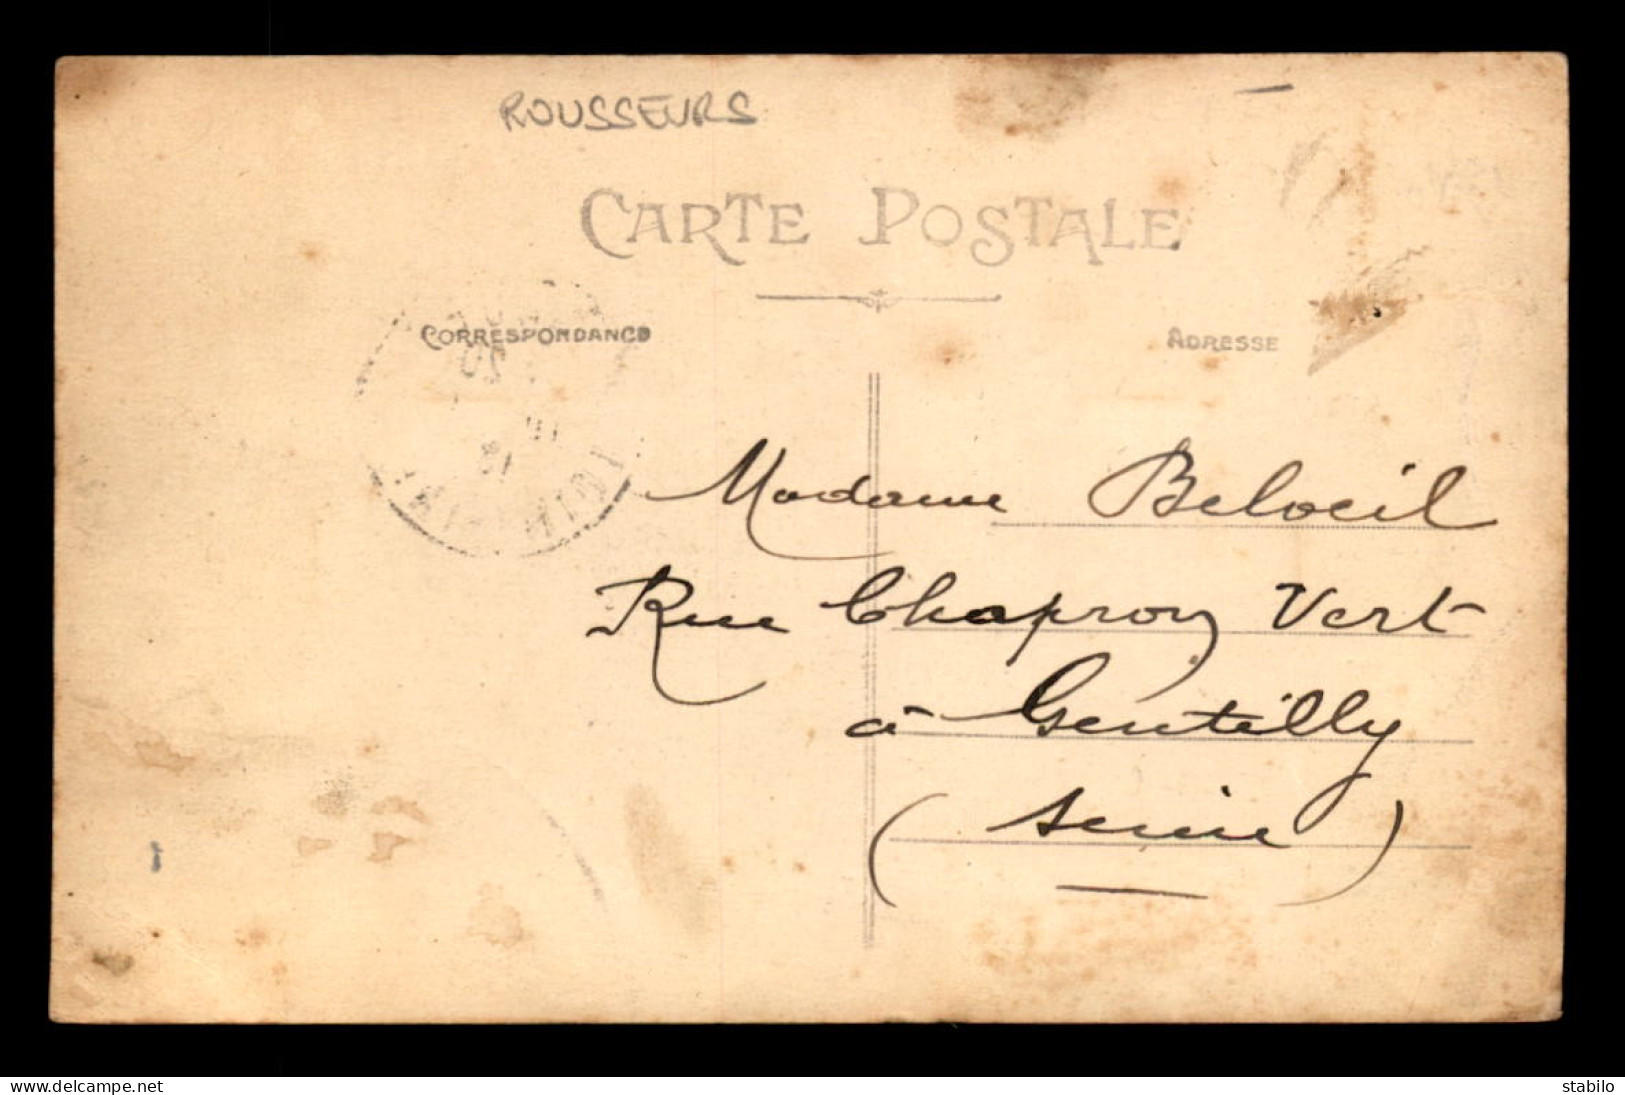 ROUSSEURS
CARTE POSTALE
CORRESPONDANCE
ADRESSE
20
Madame Beloeil
Rue Chapron Vert
à Gentilly
(Seine)
www.delcampe.net
stabilo